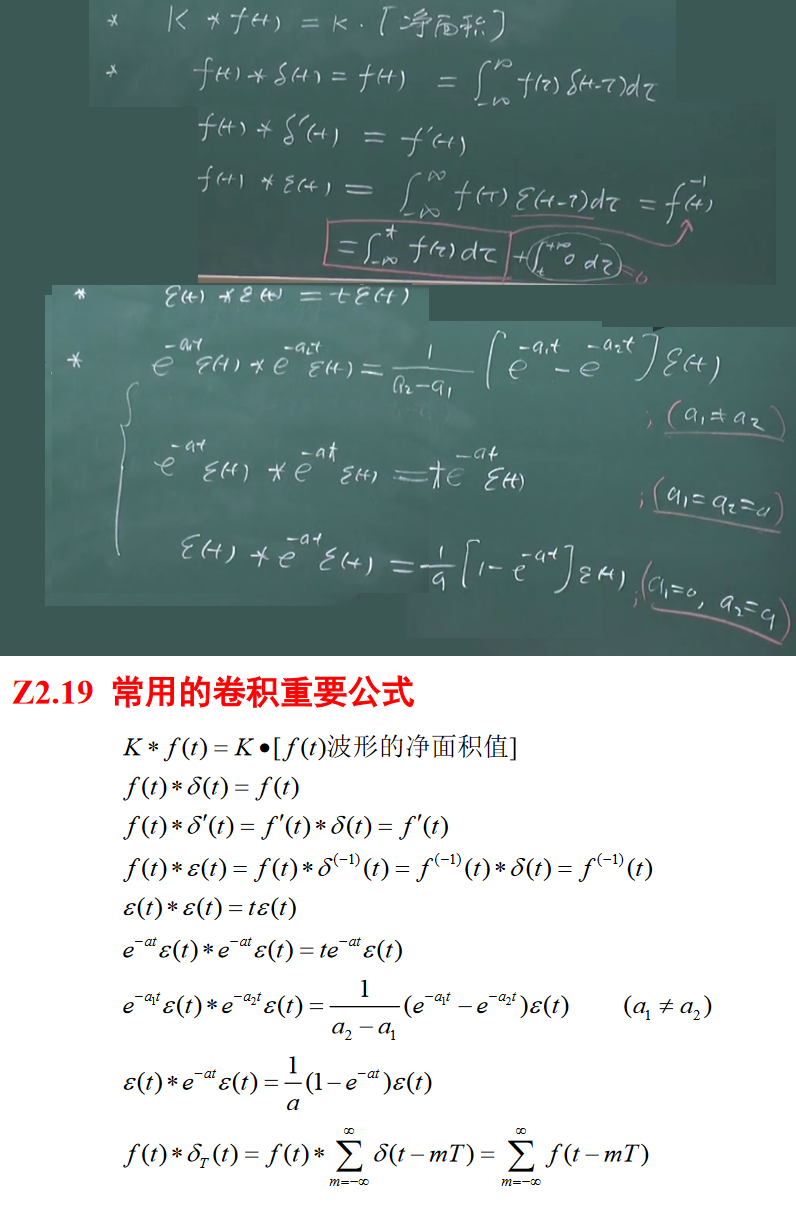 * K * f(t) = K · [净面积]
* f(t) * δ(t) = f(t) = ∫_{-∞}^{∞} f(τ) δ(t-τ)dτ
f(t) * δ'(t) = f'(t)
f(t) * ε(t) = ∫_{-∞}^{∞} f(τ) ε(t-τ)dτ = f^{-1}(t)
= ∫_{-∞}^{t} f(τ)dτ + ∫_{t}^{+∞} 0 dτ = 0
* ε(t) * ε(t) = tε(t)
* e^{-a₁t} ε(t) * e^{-a₂t} ε(t) = \frac{1}{a₂-a₁} [e^{-a₁t} - e^{-a₂t}] ε(t)
; (a₁ ≠ a₂)
e^{-at} ε(t) * e^{-at} ε(t) = te^{-at} ε(t)
; (a₁=a₂=a)
ε(t) * e^{-at} ε(t) = \frac{1}{a} [1-e^{-at}] ε(t) ; (a₁=0, a₂=a)
Z2.19 常用的卷积重要公式
K * f(t) = K •[f(t)波形的净面积值]
f(t) * δ(t) = f(t)
f(t) * δ′(t) = f′(t) * δ(t) = f′(t)
f(t) * ε(t) = f(t) * δ^{(-1)}(t) = f^{(-1)}(t) * δ(t) = f^{(-1)}(t)
ε(t) * ε(t) = tε(t)
e^{-at} ε(t) * e^{-at} ε(t) = te^{-at} ε(t)
e^{-a₁t} ε(t) * e^{-a₂t} ε(t) = \frac{1}{a₂ - a₁} (e^{-a₁t} - e^{-a₂t})ε(t) (a₁ ≠ a₂)
ε(t) * e^{-at} ε(t) = \frac{1}{a} (1 - e^{-at})ε(t)
f(t) * δ_T(t) = f(t) * ∑_{m=-∞}^{∞} δ(t - mT) = ∑_{m=-∞}^{∞} f(t - mT)